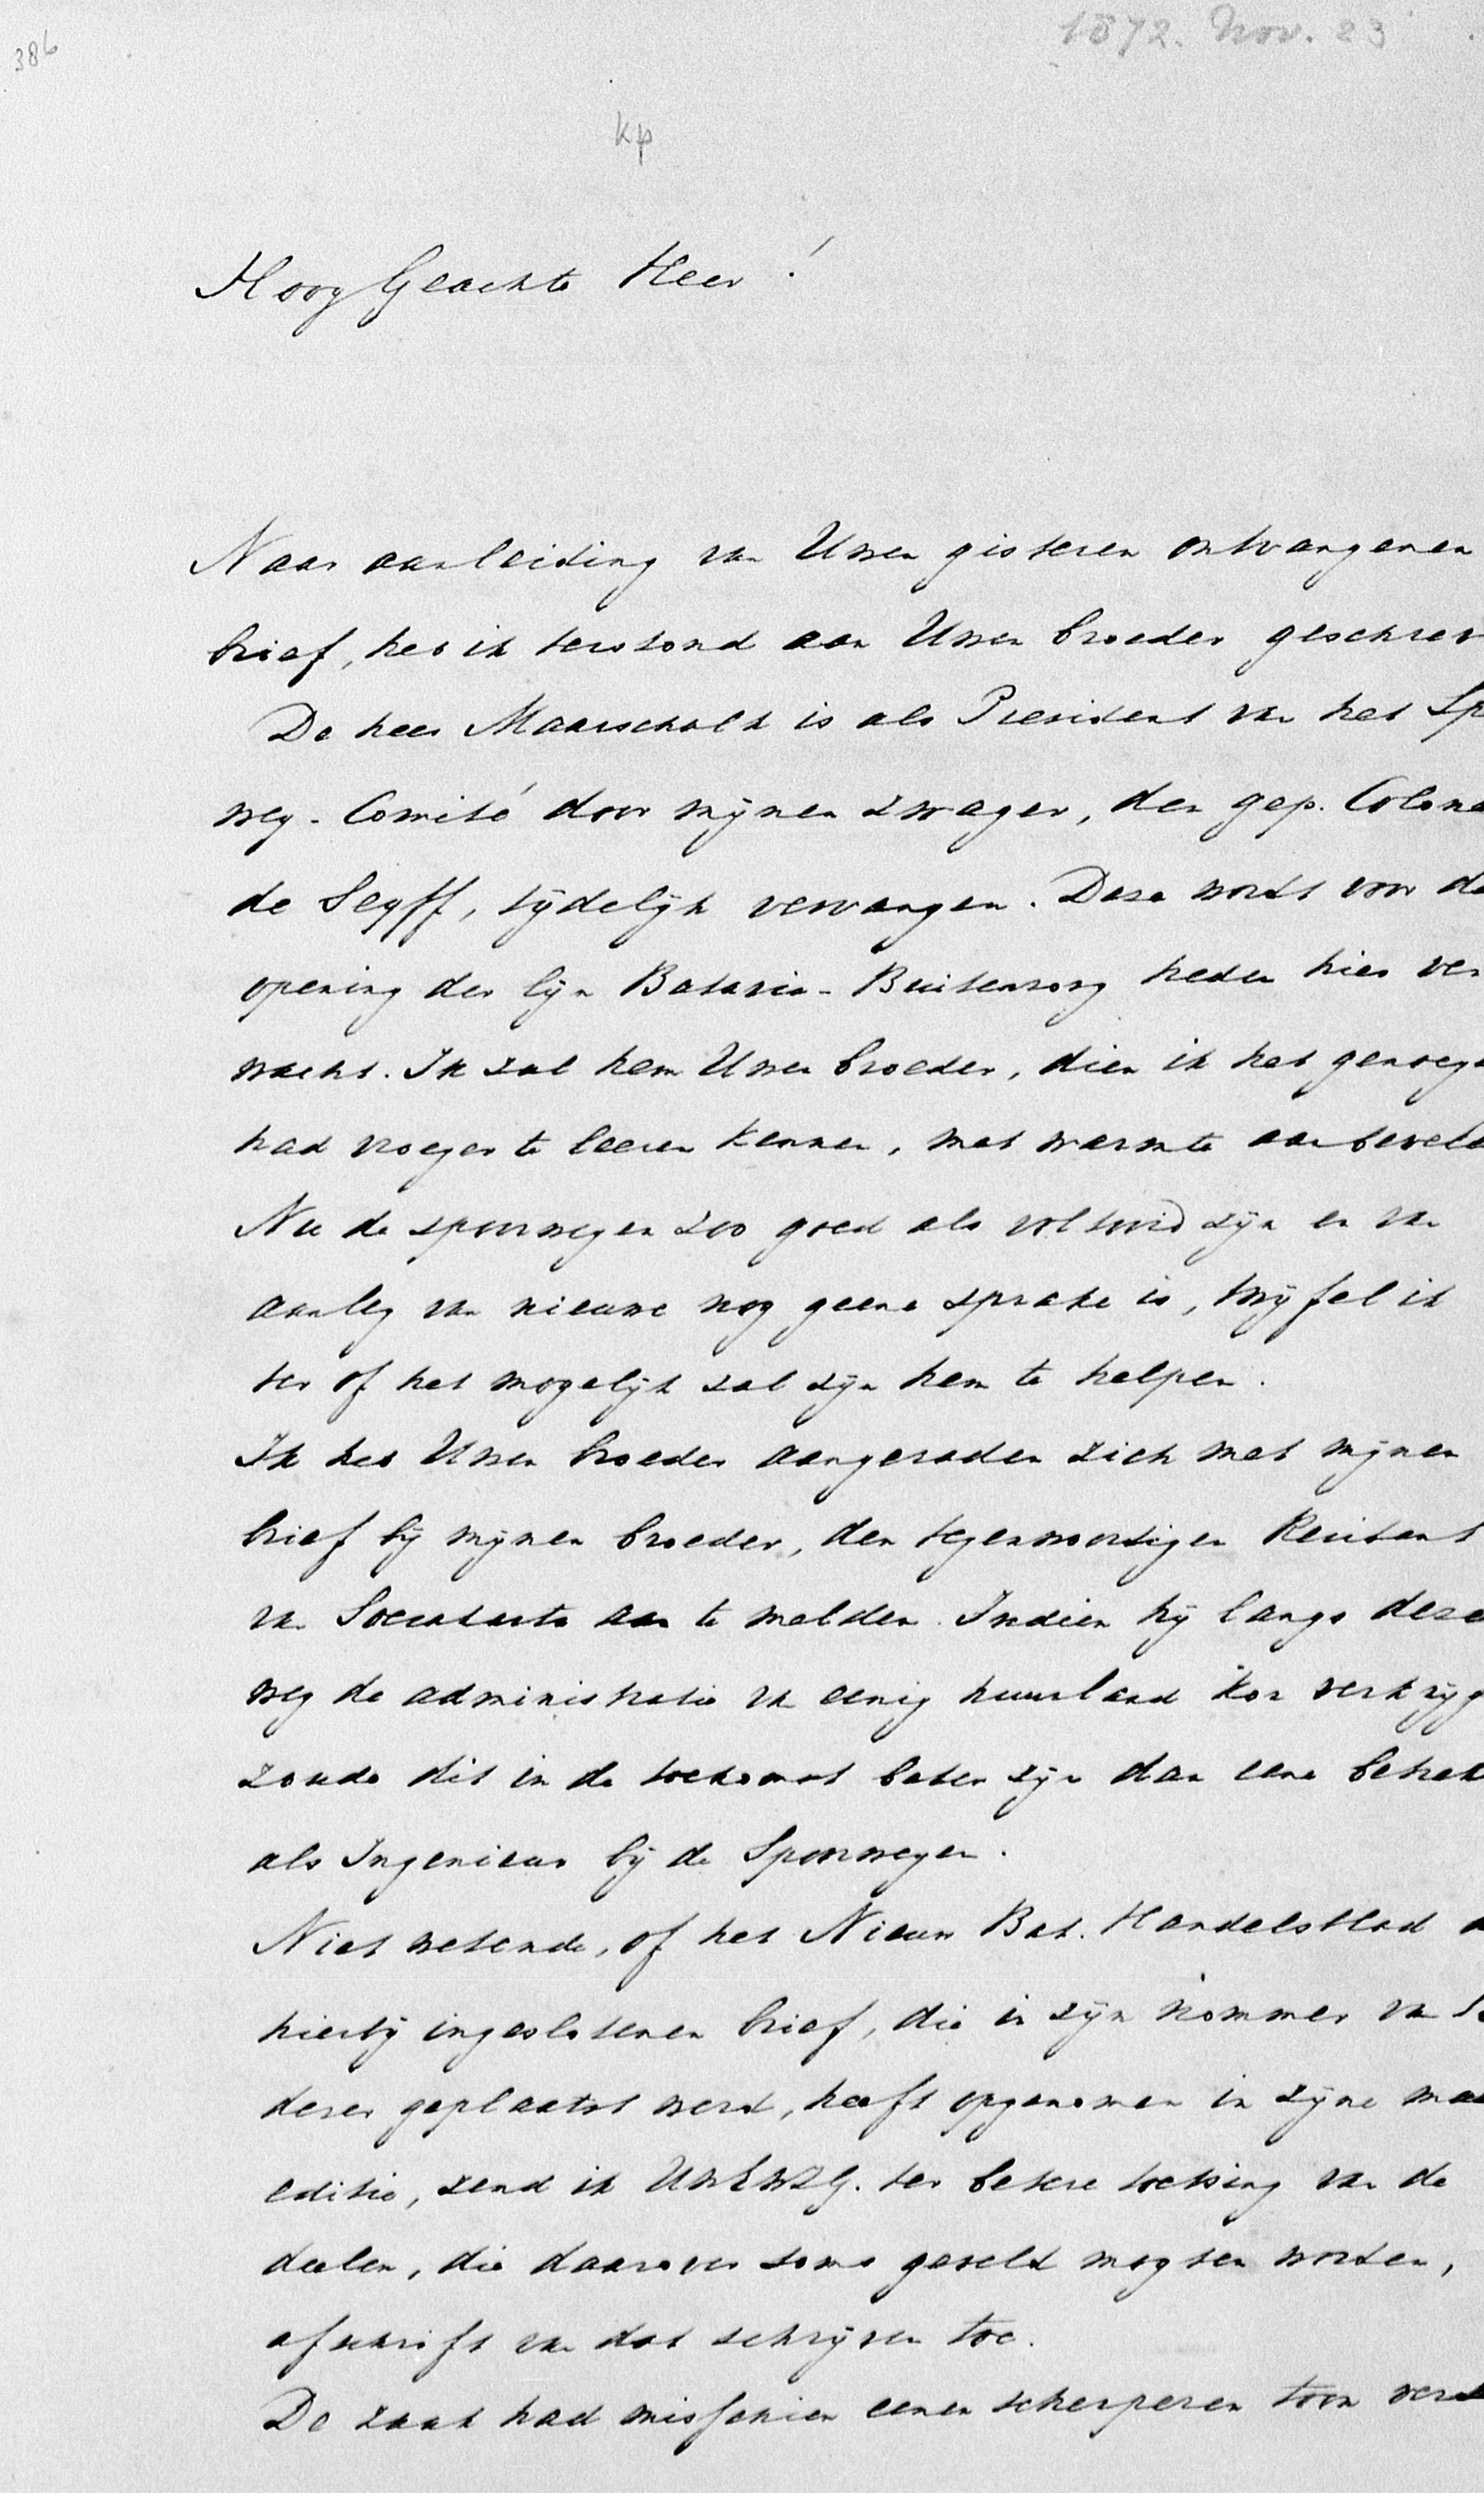 386
1872. Nov. 23
Kp
Hoog Geachte Heer!
Naar aanleiding van Uwen gisteren ontvangenen
brief, heb ik terstond aan Uwen broeder geschrev
De heer Maarschalk is als President van het Sp
weg-Comité door mijnen zwager, den gep. Colone
de Seyff, tijdelijk vervangen. Deze wordt voor de
opening der lijn Batavia-Buitenzorg heden hier ver
wacht. Ik zal hem Uwen broeder, dien ik het genoege
had vroeger te leeren kennen, met warmte aanbevele
Nu de spoorwegen zoo goed als voltooid zijn en van
aanleg van nieuwe nog geene sprake is, twijfel ik
zer of het mogelijk zal zijn hem te helpen.
Ik heb Uwen broeder aangeraden zich met mijnen
brief bij mijnen broeder, den tegenwoordigen Resident
van Soerakarta aan te melden. Indien hij langs deze
weg de administratie van eenig huurland kon verkrijg
zoude dit in de toekomst beter zijn dan eene betrek
als Ingenieur bij de Spoorwegen.
Niet wetende, of het Nieuw Bat. Handelsblad
hierbij ingeslotenen brief, die in zijn nommer van
dezer geplaatst werd, heeft opgenomen in zijne mai
editie, zend ik UWEWZG. ter betere toetsing van de
deelen, die daarover soms geveld mogten worden,
afschrift van dat schrijven toe.
De zaak had misschien eenen scherperen toon verd